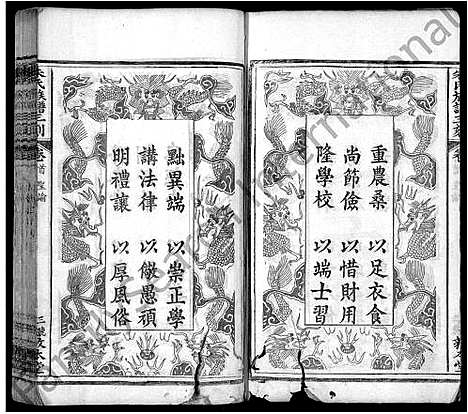 重農桑 以足衣食
尚節儉 以惜財用
隆學校 以端士習
黜異端 以崇正學
講法律 以儆愚頑
明禮讓 以厚風俗
朱氏族譜三刻